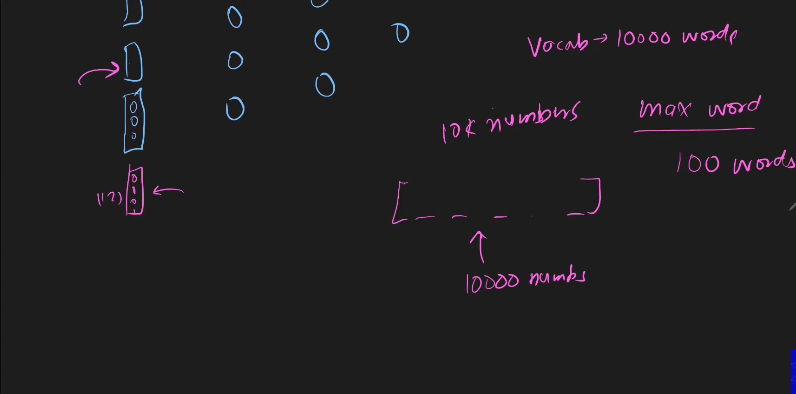 Vocab → 10000 words
10k numbers
max word
100 words
10000 numbs